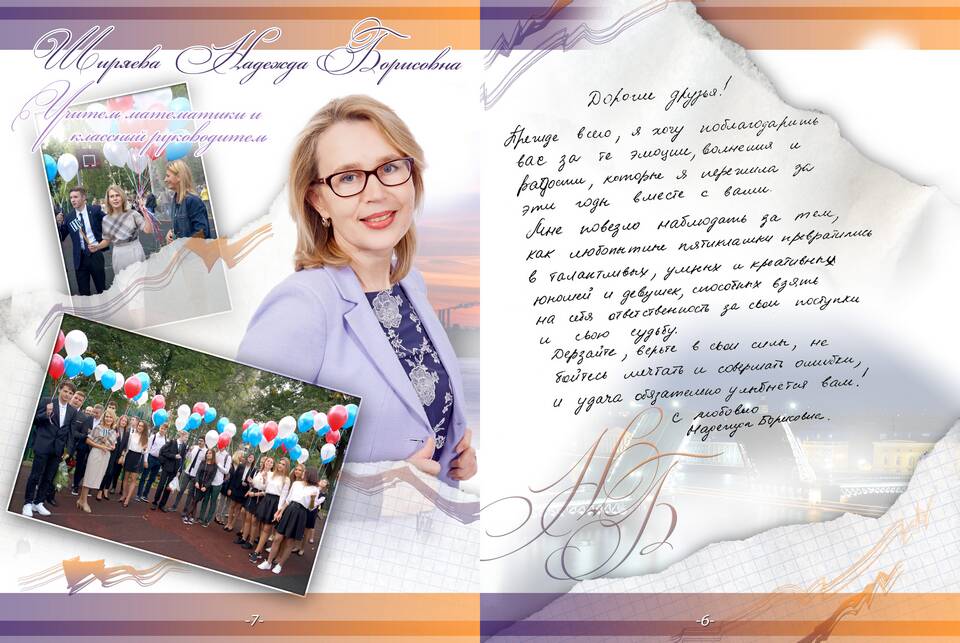 Ширяева Надежда Борисовна
Учитель математики и
классный руководитель
-7-
Дорогие друзья!
Прежде всего, я хочу поблагодарить
вас за те эмоции, волнения и
радости, которые я пережила за
эти годы вместе с вами.
Мне повезло наблюдать за тем,
как любопытные пятиклашки превратились
в талантливых, умных и креативных
юношей и девушек, способных взять
на себя ответственность за свои поступки
и свою судьбу.
Дерзайте, верьте в свои силы, не
бойтесь мечтать и совершать ошибки,
и удача обязательно улыбнется вам!
С любовью
Надежда Борисовна.
НВБ
-6-